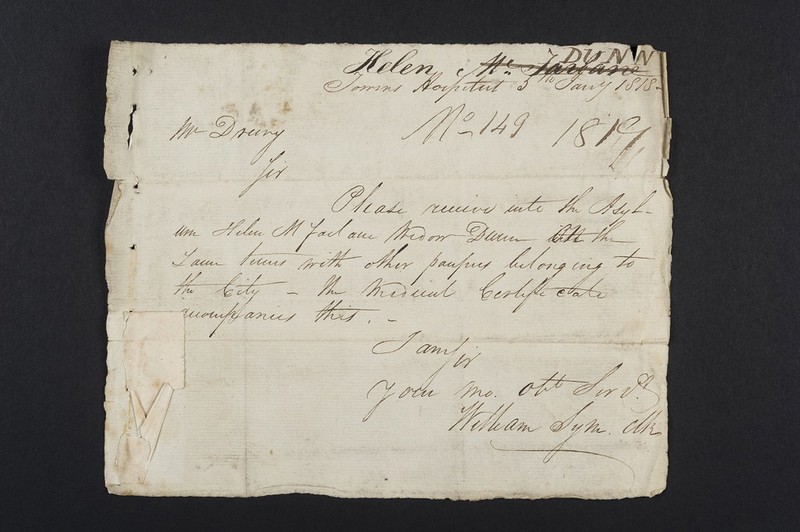 DUNN
Helen Mc Farlane
Towns Hospital 3th Jany 1818-
Mr Drury No 149 1817
Sir
Please receive into the Asyl-
um Helen McFarlane Widow Dunn on the
same terms with other paupers belonging to
the City - the Medical Certificate
accompanies this. -
I am Sir
Your mo. obt Servt.
William Sym. Clk